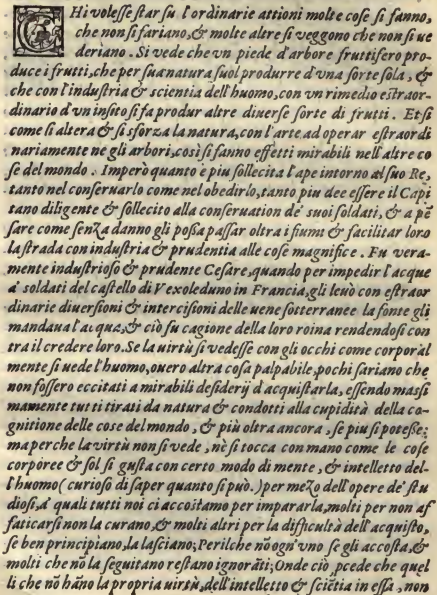 CHi volesse star su l'ordinarie attioni molte cose si fanno,
che non si fariano, & molte altre si veggono che non si ue
deriano. Si vede che vn piede d'arbore fruttifero pro-
duce i frutti, che per sua natura suol produrre d'vna sorte sola, &
che con l'industria & scientia dell'huomo, con vn rimedio estraor-
dinario d'vn insito si fa produr altre diuerse sorte di frutti. Et si
come si altera & si sforza la natura, con l'arte, ad operar estraordi
nariamente ne gli arbori, così si fanno effetti mirabili nell'altre co
se del mondo. Imperò quanto è piu sollecita l'ape intorno al suo Re,
tanto nel conseruarlo come nel obedirlo, tanto piu dee essere il Capi
tano diligente & sollecito alla conseruation de' suoi soldati, & a pẽ
sare come senza danno gli possa passar oltra i fiumi & facilitar loro
la strada con industria & prudentia alle cose magnifice. Fu vera-
mente industrioso & prudente Cesare, quando per impedir l'acque
a' soldati del castello di Vexoleduno in Francia, gli leuò con estraor
dinarie diuersioni & intercisioni delle uene sotterranee la fonte gli
mandaua l'acqua, & ciò fu cagione della loro roina rendendosi con
tra il credere loro. Se la uirtù si vedesse con gli occhi come corporal
mente si uede l'huomo, ouero altra cosa palpabile, pochi sariano che
non fossero eccitati a mirabili desiderij d'acquistarla, essendo massi
mamente tutti tirati da natura & condotti alla cupidità della co-
gnitione delle cose del mondo, & più oltra ancora, se piu si potesse;
ma perche la virtù non si vede, nè si tocca con mano come le cose
corporee & sol si gusta con certo modo di mente, & intelletto del-
l'huomo (curioso di saper quanto si può.) per mezo dell'opere de' stu
diosi, a' quali tutti noi ci accostamo per impararla, molti per non af
faticarsi non la curano, & molti altri per la difficultà dell'acquisto,
se ben principiano, la lasciano; Perilche nõ ogn'vno se gli accosta, &
molti che nõ la seguitano restano ignorãti; Onde ciò pcede che quel
li che nõ hãno la propria uirtù, dell'intelletto & sciẽtia in essa, non